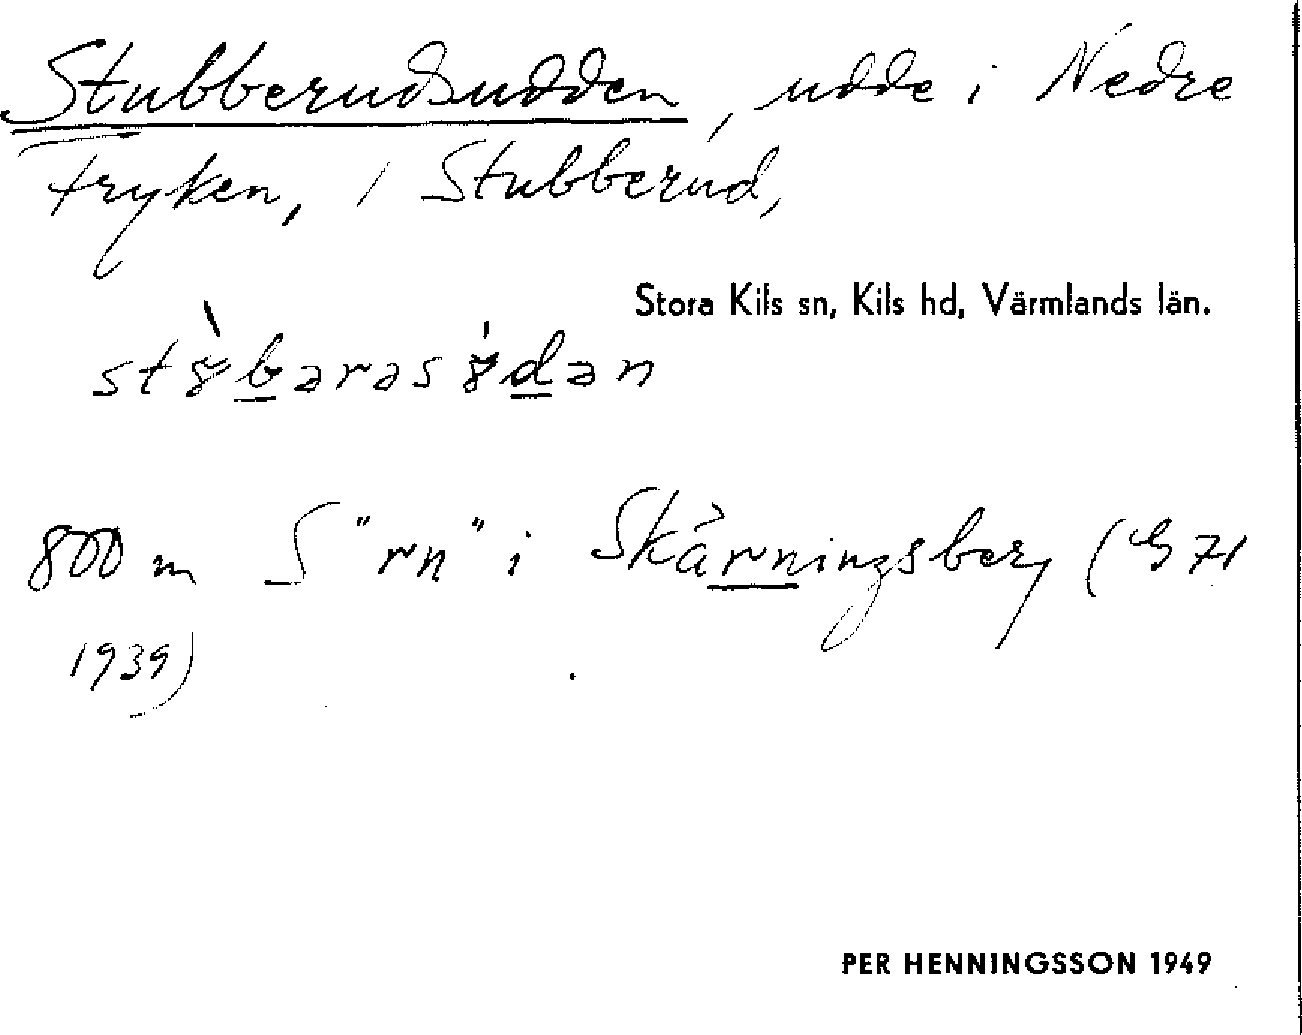 Stubberudsudden, udde i Nedre
Fryken, i Stubberud,
Stora Kils sn, Kils hd, Värmlands län.
800 m S "rn" i Skårningsberg (G 71
1939)
PER HENNINGSSON 1949